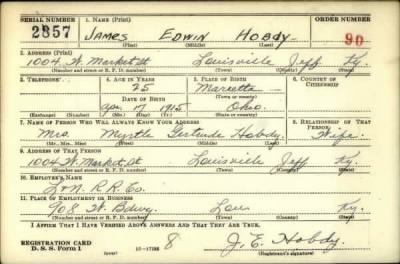 SERIAL NUMBER 1. NAME (Print) ORDER NUMBER
2857 JAMES EDWIN HOBDY 90
(First) (Middle) (Last)
2. ADDRESS (Print)
1004 W. Market St Louisville Jeff Ky.
(Number and street or R. F. D. number) (Town) (County) (State)
3. TELEPHONE 4. AGE IN YEARS 5. PLACE OF BIRTH 6. COUNTRY OF CITIZENSHIP
25 Marietta
DATE OF BIRTH (Town or county)
Apr. 17 1915 Ohio.
(Exchange) (Number) (Mo.) (Day) (Yr.) (State or country)
7. NAME OF PERSON WHO WILL ALWAYS KNOW YOUR ADDRESS 8. RELATIONSHIP OF THAT PERSON
Mrs. Myrtle Gertrude Hobdy. Wife.
(Mr., Mrs., Miss) (First) (Middle) (Last)
9. ADDRESS OF THAT PERSON
1004 W. Market St Louisville Jeff Ky.
(Number and street or R. F. D. number) (Town) (County) (State)
10. EMPLOYER'S NAME
L & N. R.R. Co.
11. PLACE OF EMPLOYMENT OR BUSINESS
908 W. Bdwy. Lou Ky.
(Number and street or R. F. D. number) (Town) (County) (State)
I AFFIRM THAT I HAVE VERIFIED ABOVE ANSWERS AND THAT THEY ARE TRUE.
REGISTRATION CARD
D. S. S. Form 1 8 J. E. Hobdy
(over) (Registrant's signature)